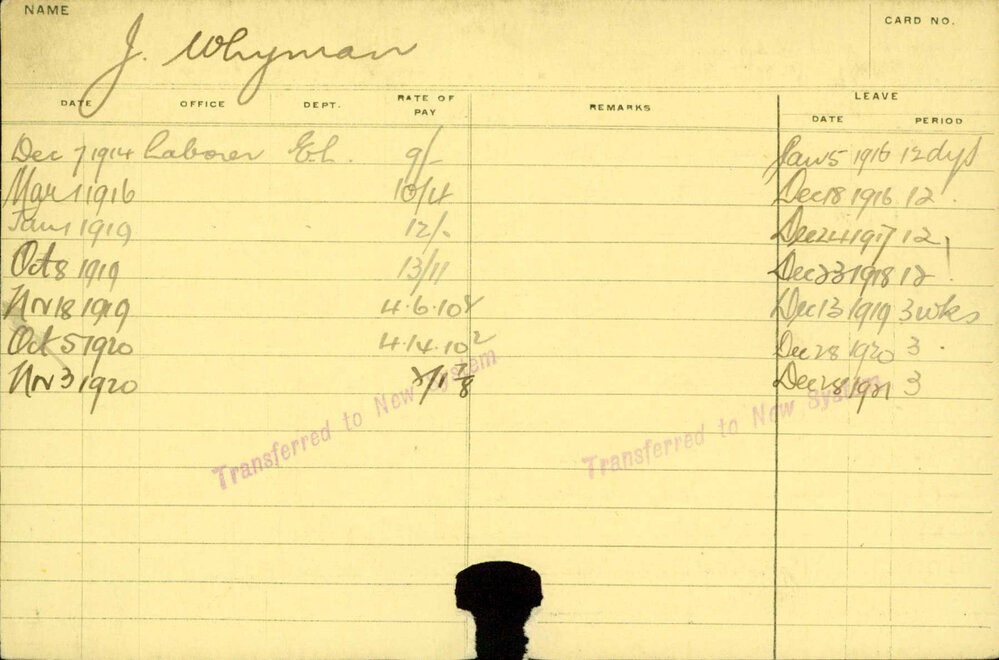 NAME
J. Whyman
CARD NO.
DATE OFFICE DEPT. RATE OF PAY REMARKS LEAVE
DATE PERIOD
Dec 7 1914 Laborer El. 9/- Jan 5 1916 12 dys
Mar 1 1916 10/4 Dec 18 1916 12
Jan 1 1919 12/- Dec 24 1917 12
Oct 8 1919 13/11 Dec 23 1918 12
Nv 18 1919 4.6.10 Dec 13 1919 3 wks
Oct 5 1920 4.14.10 2 Dec 28 1920 3
Nv 3 1920 2/1 7/8 Dec 28 1921 3
Transferred to New System
Transferred to New System